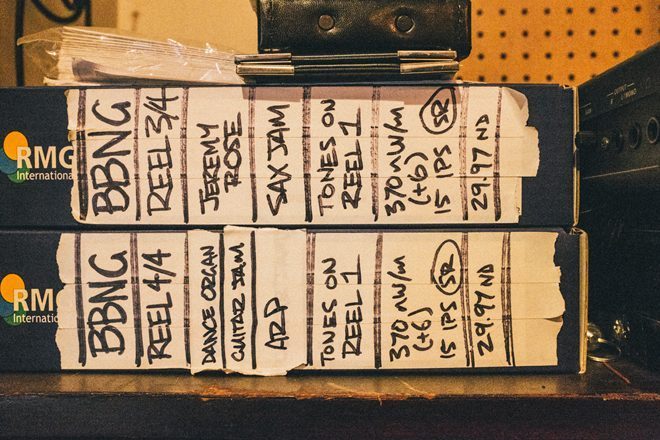 RMG
International
BBNG
REEL 3/4
JEREMY
ROSE
SAX JAM
TONES ON
REEL 1
370 nW/m
(+6)
15 IPS SR
29.97 ND
RMG
International
BBNG
REEL 4/4
DANCE ORGAN
GUITAR JAM
ARP
TONES ON
REEL 1
370 nW/m
(+6)
15 IPS SR
29.97 ND
OUTPUT